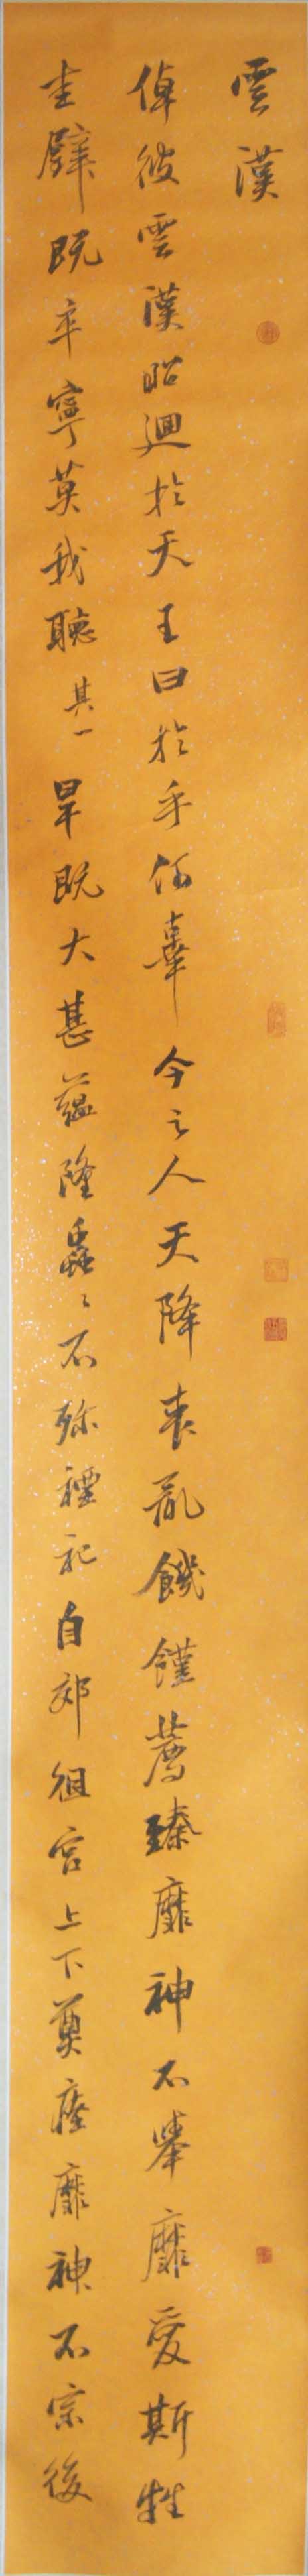 雲漢
倬彼雲漢昭迴於天王曰於乎何辜今之人天降喪亂饑饉薦臻靡神不舉靡愛斯牲
圭璧既卒寧莫我聽其一旱既大甚蘊隆蟲〻不殄禋祀自郊徂宮上下奠瘞靡神不宗後